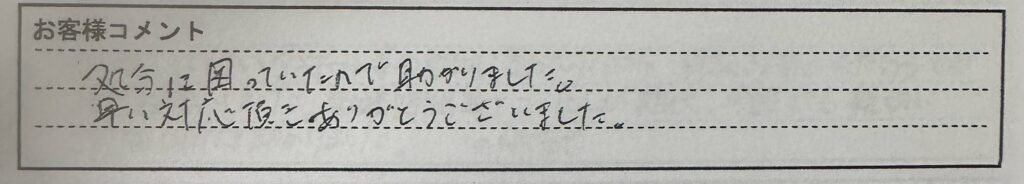 お客様コメント
処分に困っていたので助かりました。
早い対応頂きありがとうございました。